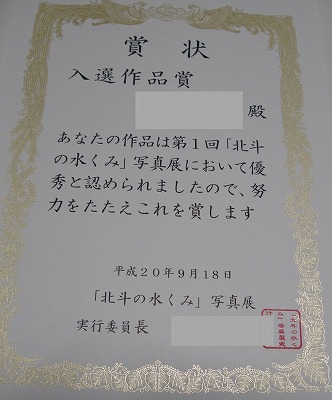 賞状
入選作品賞
殿
あなたの作品は第1回「北斗
の水くみ」写真展において優
秀と認められましたので、努
力をたたえこれを賞します
平成20年9月18日
「北斗の水くみ」写真展
実行委員長